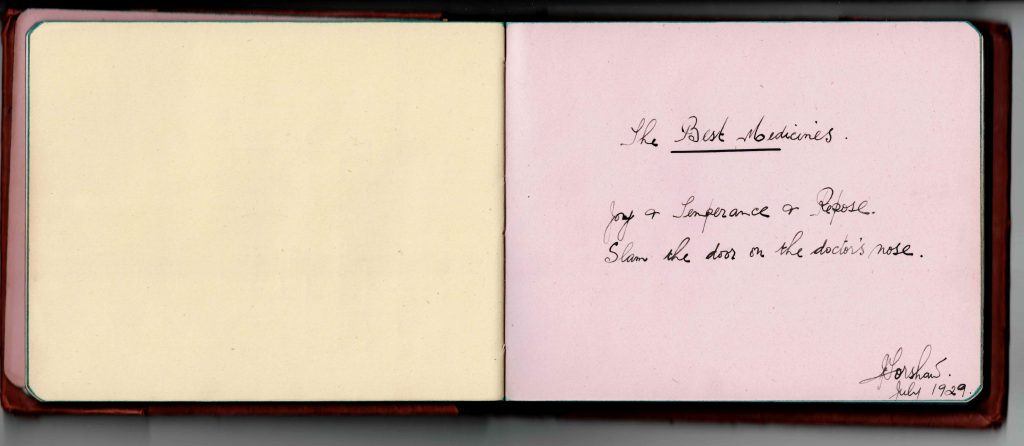 The Best Medicines.
Joy & Temperance & Repose.
Slam the door on the doctor's nose.
July 1929.